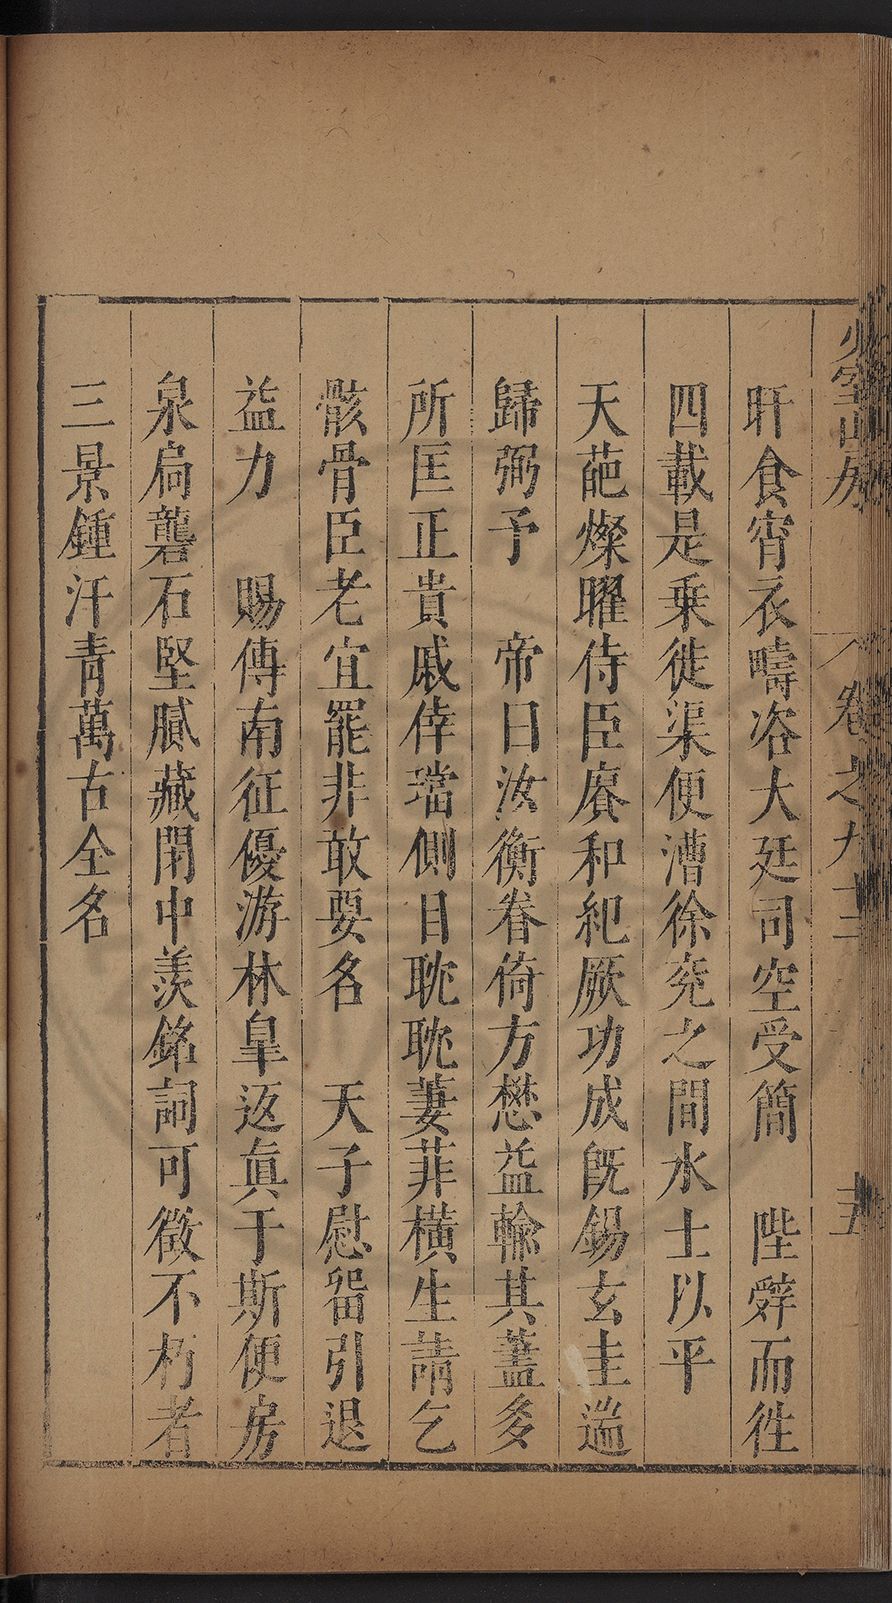 少室山房
卷之九十三
十五
旰食宵衣疇咨大廷司空受簡　陛辭而徃
四載是乗徙渠便漕徐兖之間水土以平
天葩燦曜侍臣賡和紀厥功成旣錫玄圭遄
歸弼予　帝曰汝衡眷倚方懋益輸其藎多
所匡正貴戚倖璫側目耽耽萋菲橫生請乞
骸骨臣老宜罷非敢要名　天子慰留引退
益力　賜傳南征優游林皐返眞于斯便房
泉扃礱石堅膩藏閉中羨銘詞可徵不朽者
三景鍾汗青萬古全名